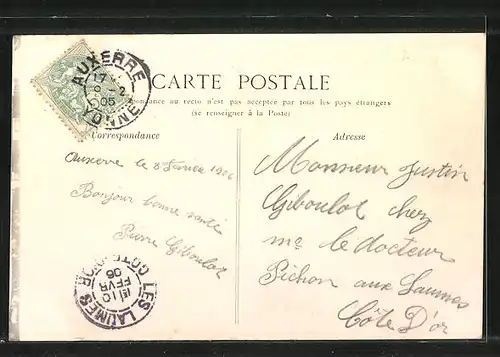 AUXERRE
17
8 - 2
05
YONNE
CARTE POSTALE
Correspondance au recto n'est pas acceptée par tous les pays étrangers
(se renseigner à la Poste)
Correspondance
Adresse
Auxerre le 8 Février 1906
Bonjour bonne santé
Pierre Giboulot
Monsieur Justin
Giboulot chez
me le docteur
Pichon aux Laumes
Côte D'or
LES LAUMES
10
FEVR
06
COTE-D'OR